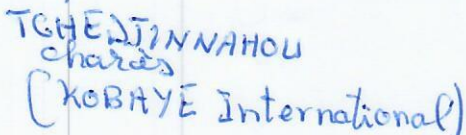 TCHEDJINNAHOU
Charès
(KOBAYE International)